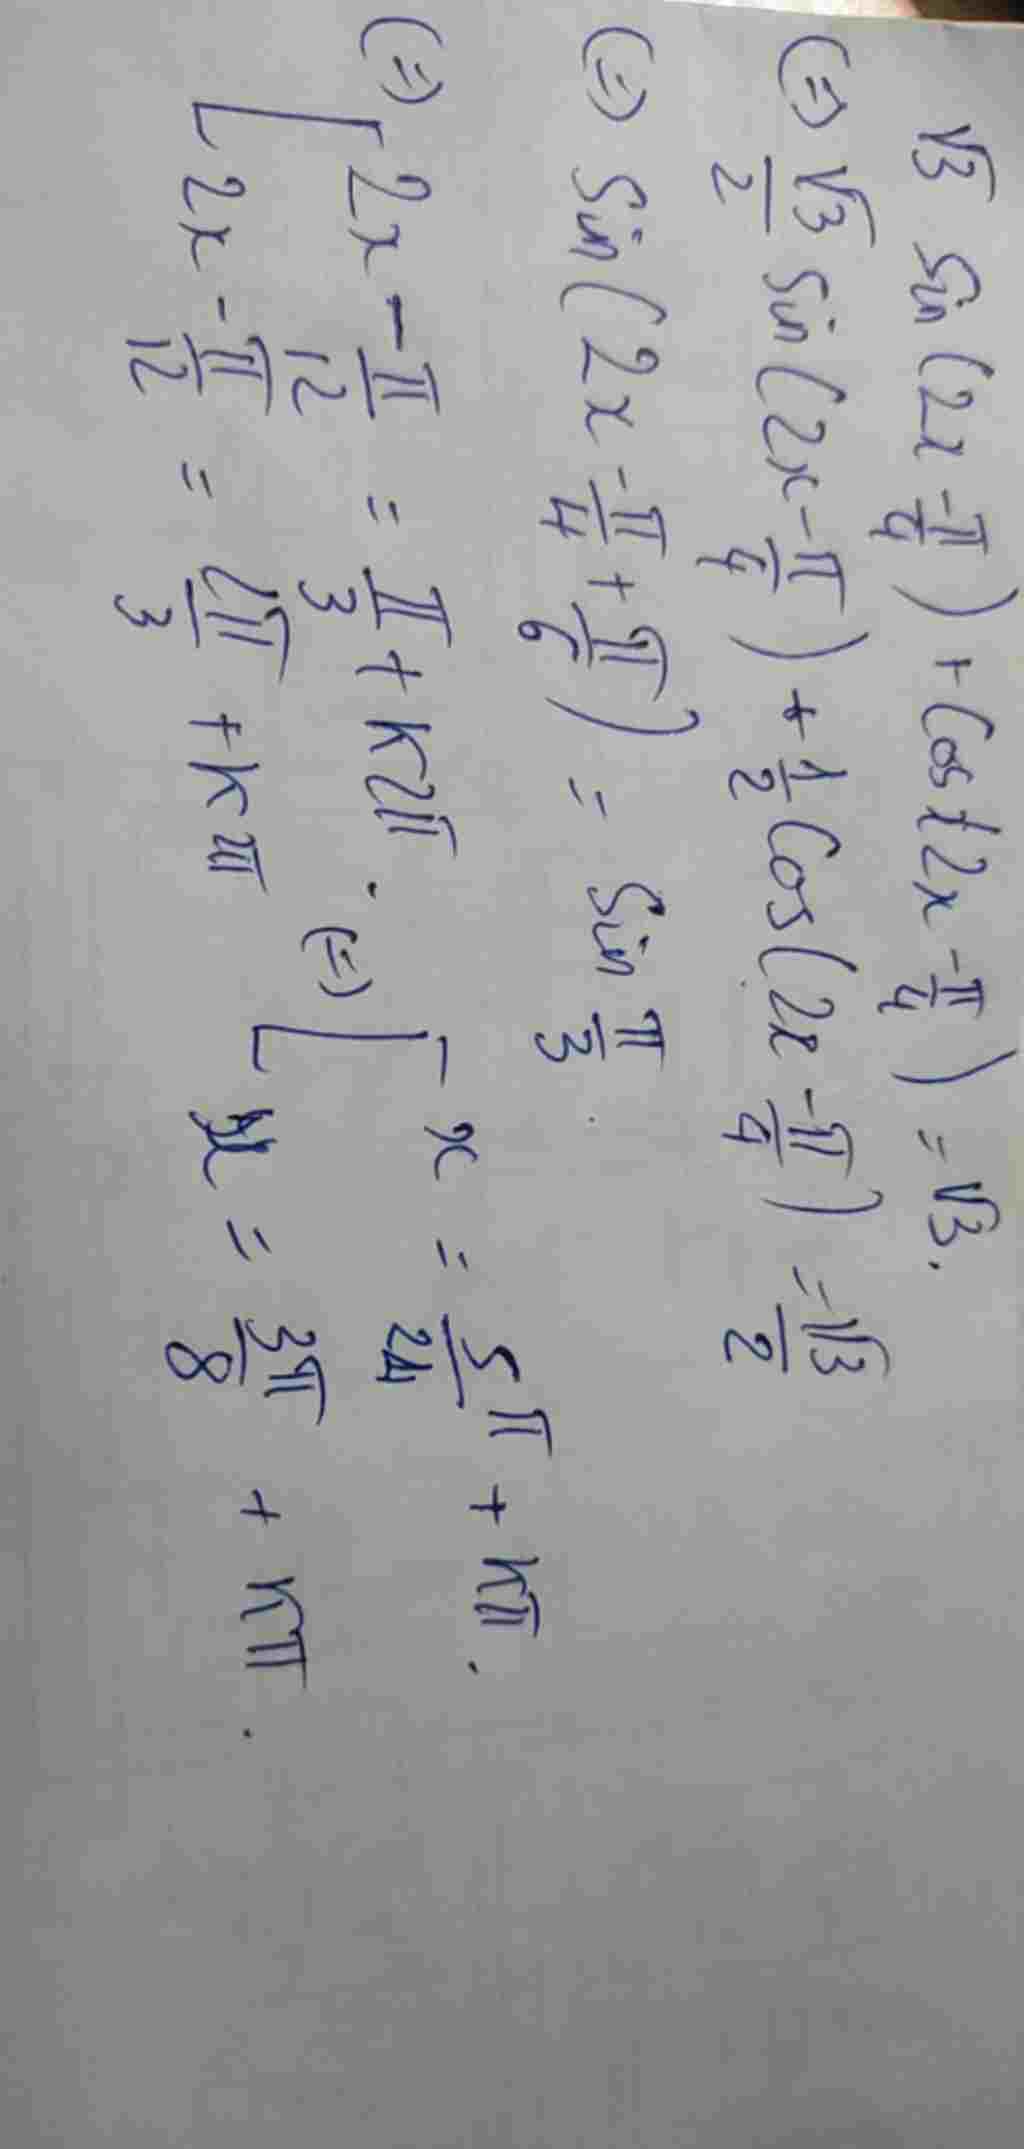 √3 sin(2x - π/4) + cos(2x - π/4) = √3.
(=) √3/2 sin(2x - π/4) + 1/2 cos(2x - π/4) = √3/2
(=) sin(2x - π/4 + π/6) = sin π/3.
(=) [ 2x - π/12 = π/3 + k2π. (=) [ x = 5/24 π + kπ.
2x - π/12 = 2π/3 + k2π x = 3π/8 + kπ.